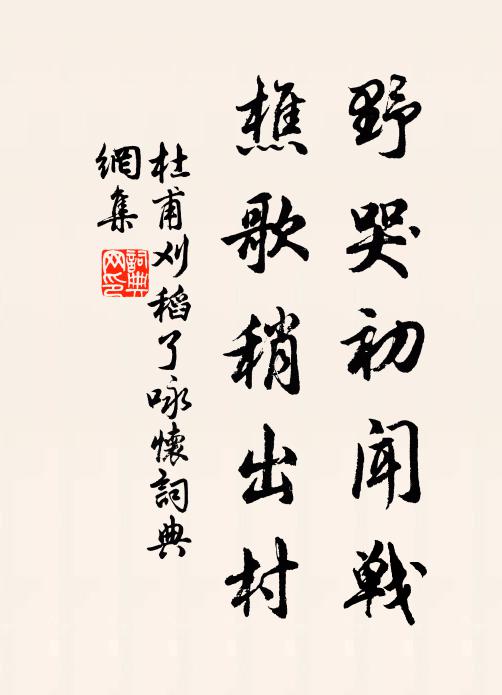 野哭初闻戦
樵歌稍出村
杜甫刈稻了咏懷詞典
網集
詞典
网印